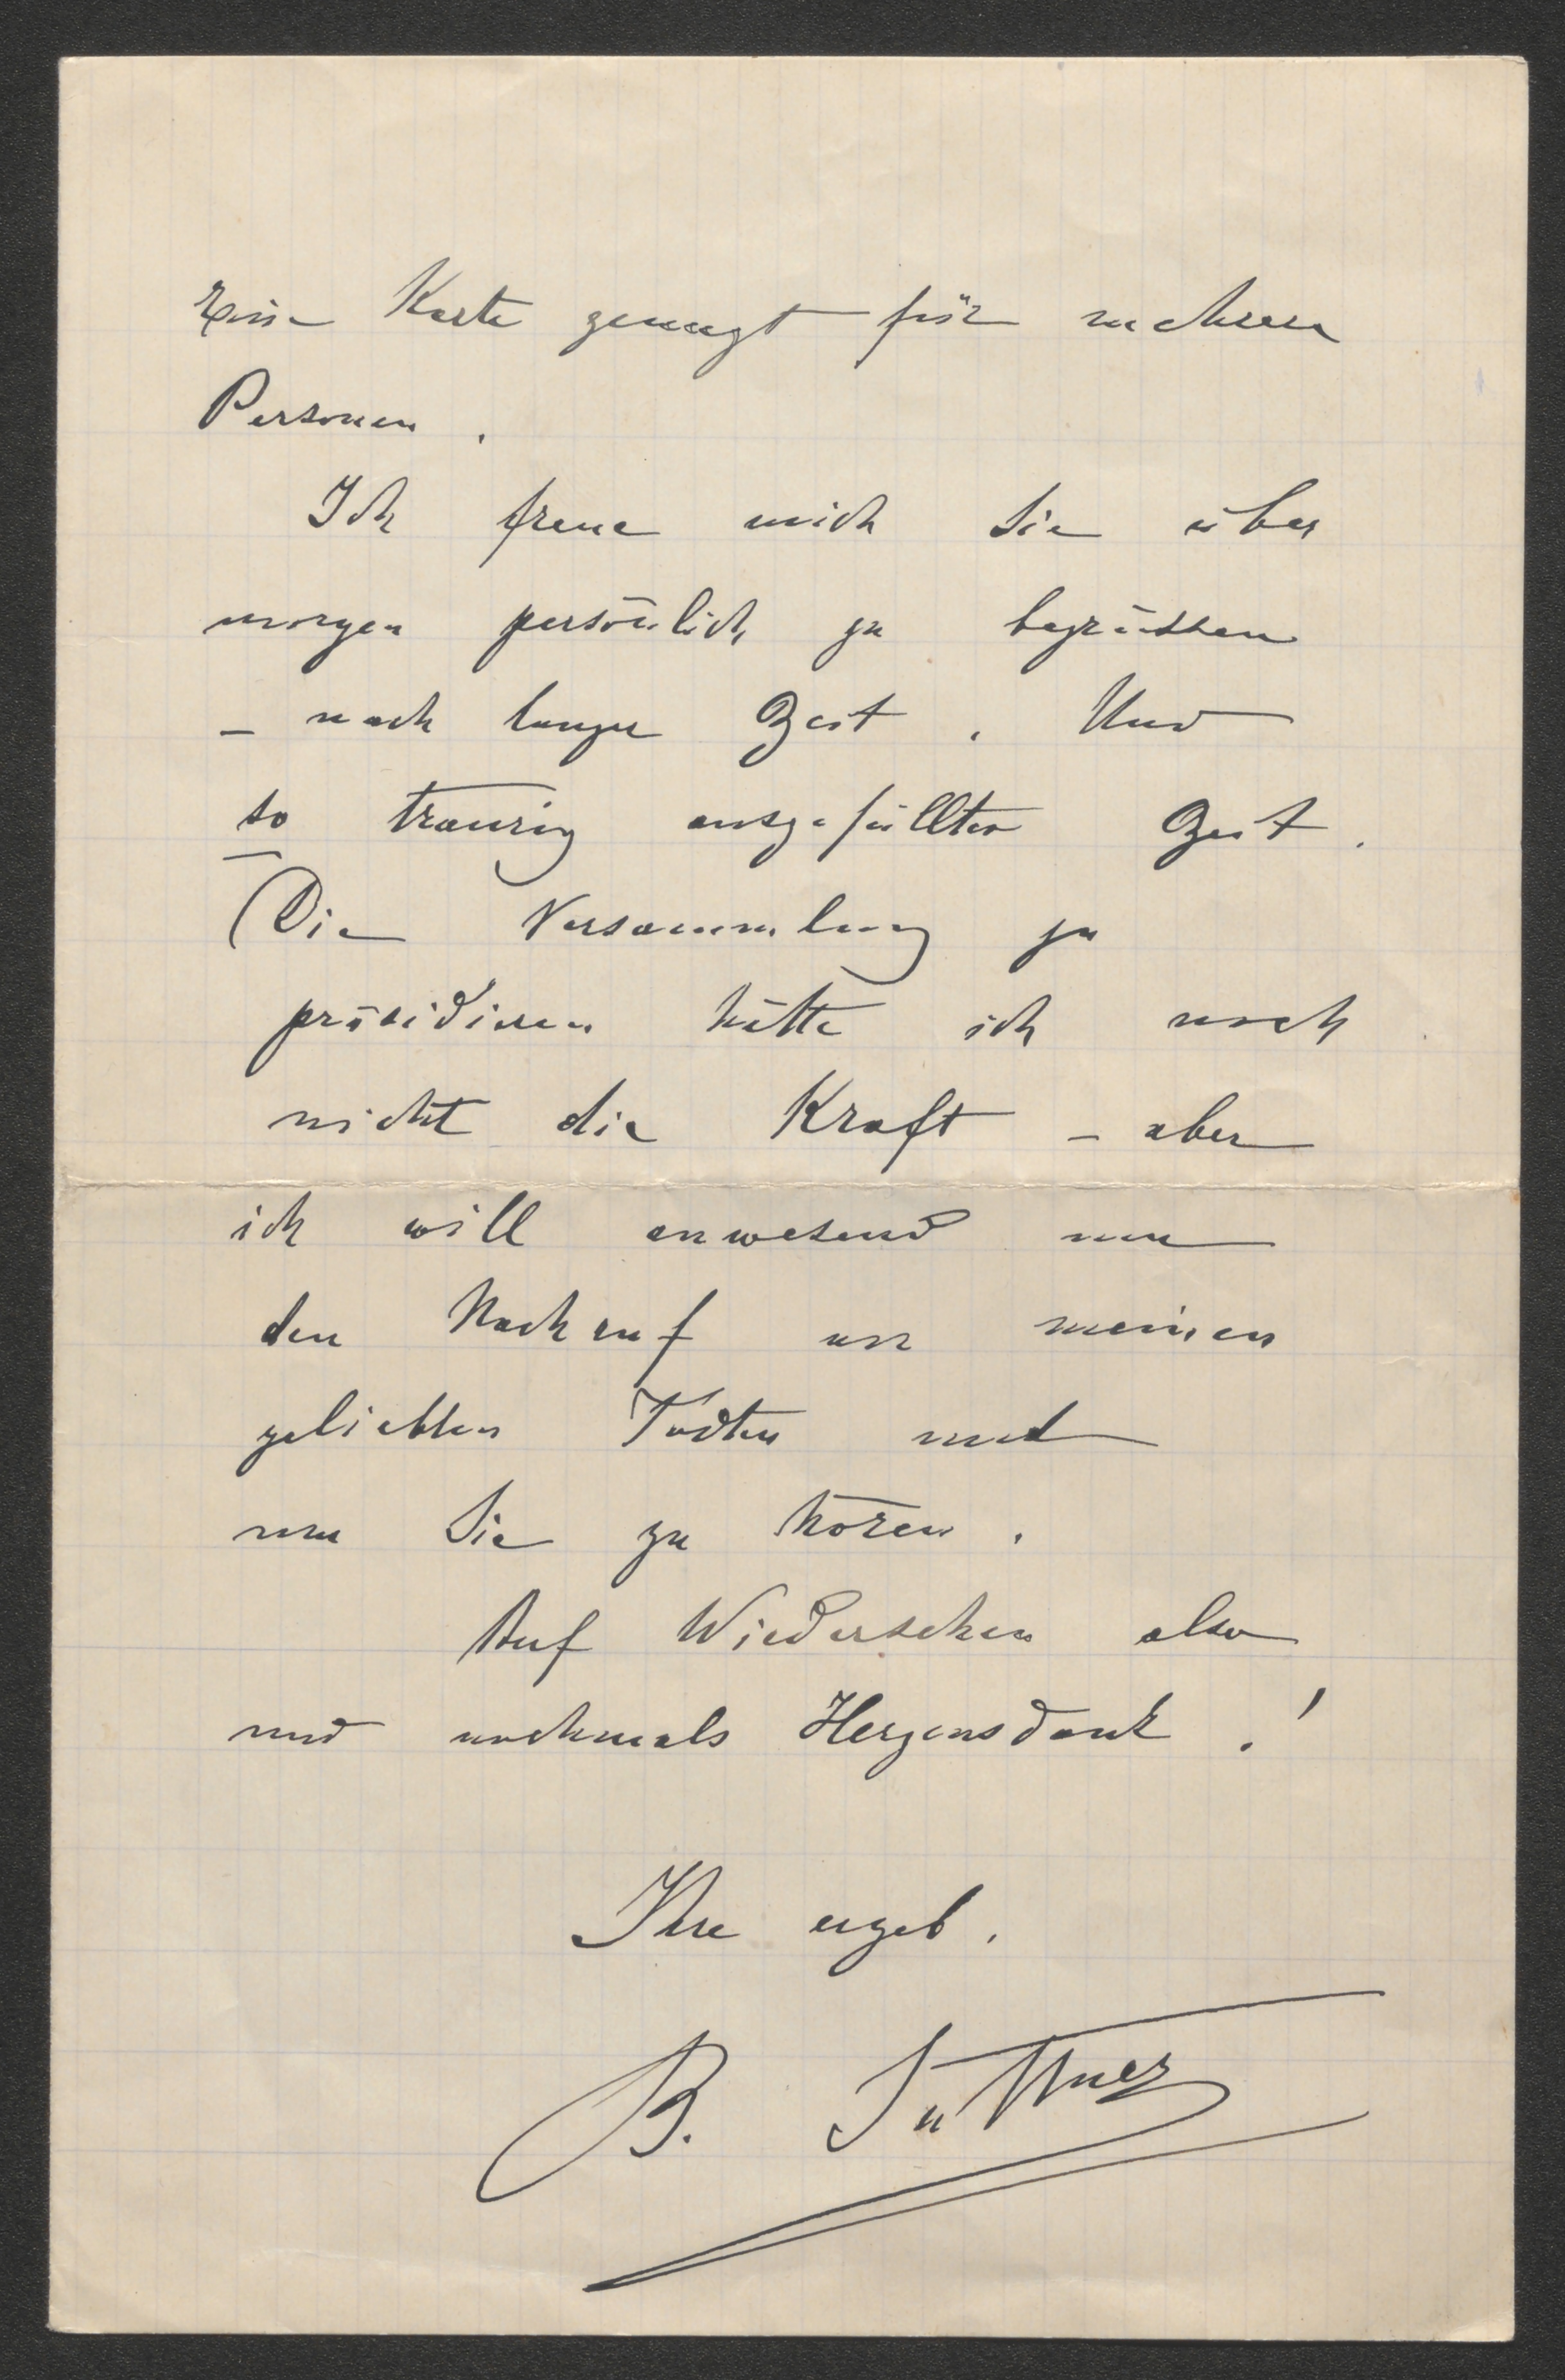 Eine Karte genügt für mehrere
Personen.
Ich freue mich Sie über
morgen persönlich zu begrüssen
– nach langer Zeit. Und
so traurig ausgefüllter Zeit.
(Die Versammlung zu
präsidieren hätte ich noch
nicht die Kraft – aber
ich will anwesend um
den Nachruf an meinen
geliebten Todten und
um Sie zu hören.
Auf Wiedersehen also
und nochmals Herzensdank!
Ihre ergeb.
B. Suttner